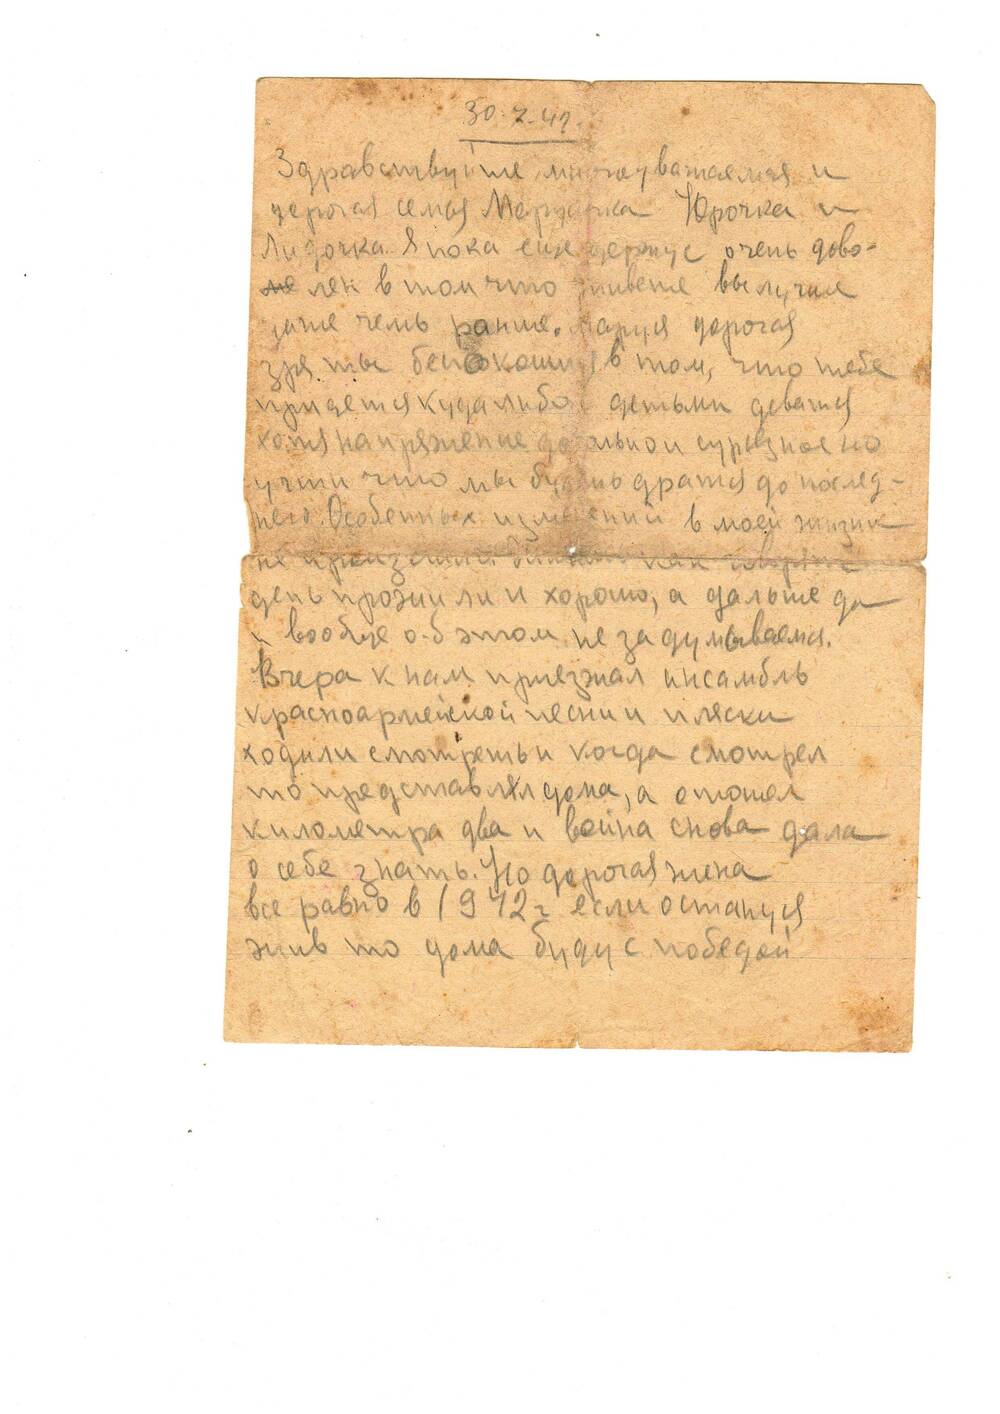 30.7.42.
Здравствуйте многоуважаемая и
дорогая семья Марусичка Юрочка и
Лидочка. Я пока еще держус очень дово-
лен в том что живете вы лучше
даже чемь ранше. Маруся дорогая
зря ты беспокоишся в том, что тебе
придется куда либо с детьми деватся
хотя напряжение довольно и сурьзное но
учти что мы будемо дратся до послед-
него. Особенных изменений в моей жизни
не произошли как говорят
день прожили и хорошо, а дальше да
и вообще об этом не задумываемся.
Вчера к нам приезжал инсамбль
красноармейской песни и пляски
ходили смотреть и когда смотрел
то представлял дома, а отошел
километра два и война снова дала
о себе знать. Но дорогая жена
все равно в 1942 г если остануся
жив то дома буду с победой